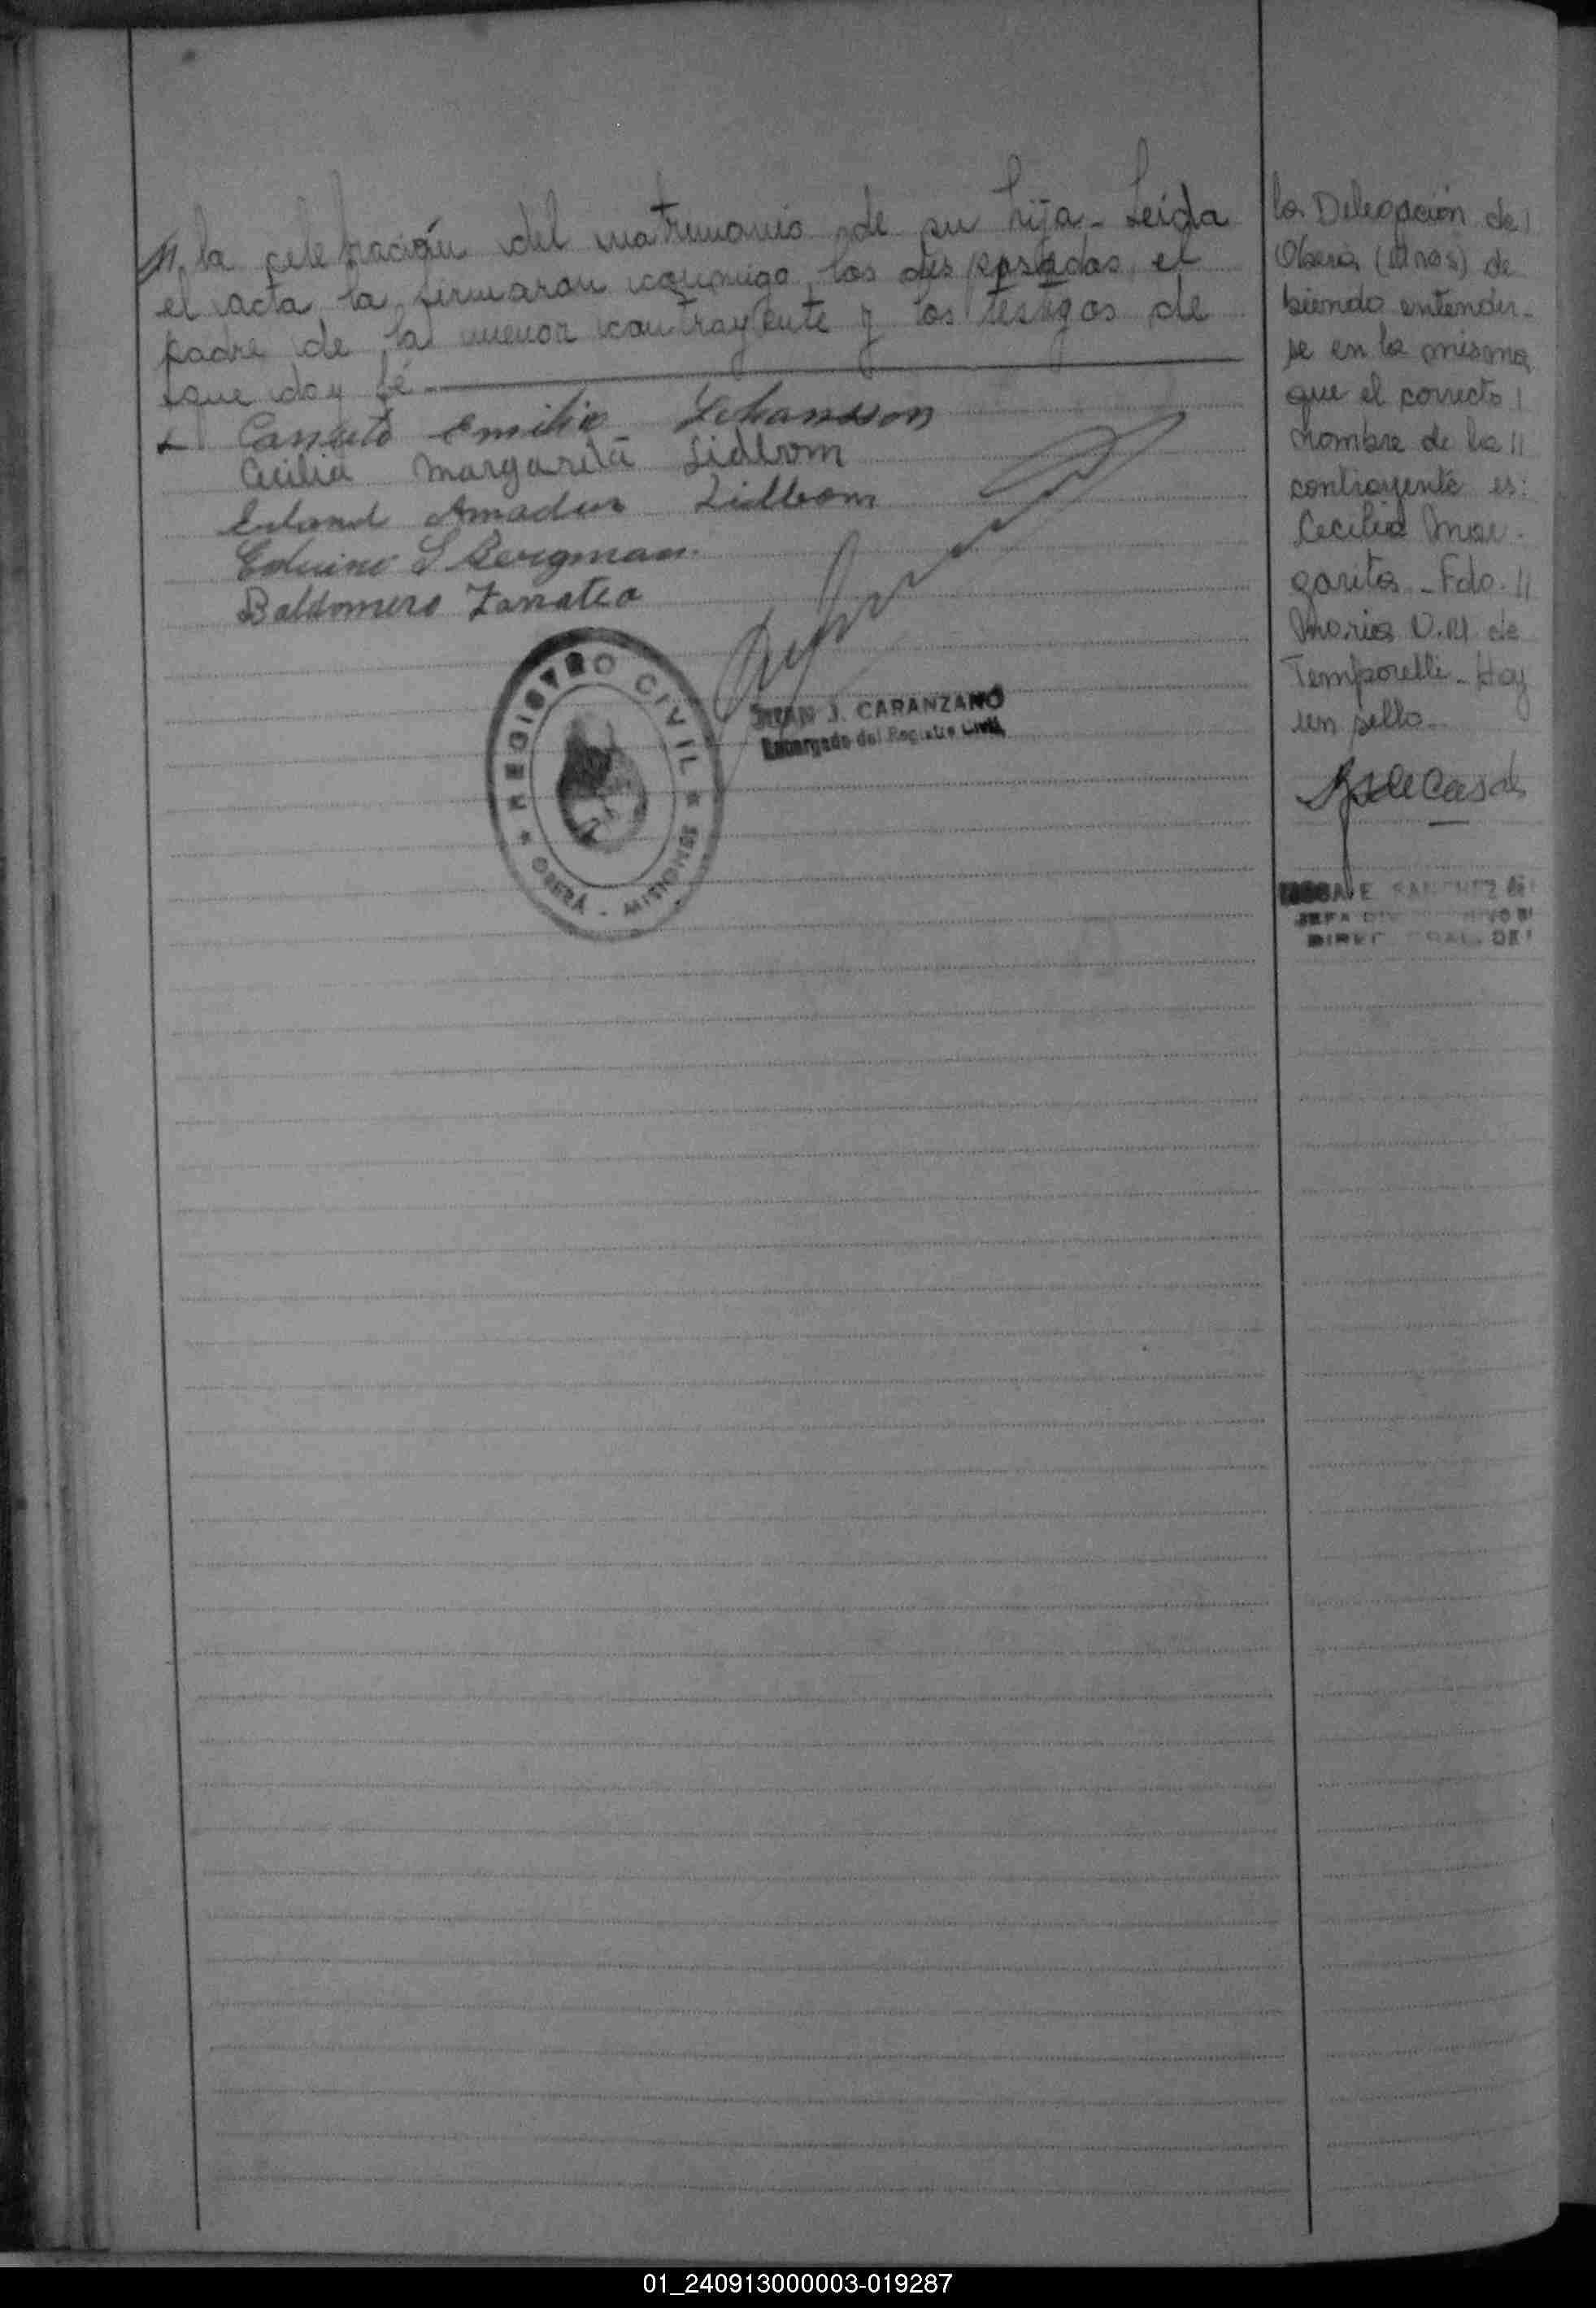 // la celebración del matrimonio de su hija - Leída
el acta la firmaron conmigo, los desposados, el
padre de la menor contrayente y los testigos de
que doy fé
Canuto Emilio Johansson
Cecilia Margarita Lidbom
Erland Amadeus Lidbom
Eduino S Bergman
Baldomero Zarratea
REGISTRO CIVIL
OBERÁ - MISIONES
JUAN J. CARANZANO
Encargado del Registro Civil
la Delegación de
Oberá (Mnes) de
biendo entender-
se en la misma
que el correcto
nombre de la //
contrayente es:
Cecilia Mar-
garita - Fdo. //
Maria V.M. de
Temporelli - Hay
un sello -
de Casas
E. SANCHEZ
JEFA DIV
DIREC GRAL. DE
01_240913000003-019287